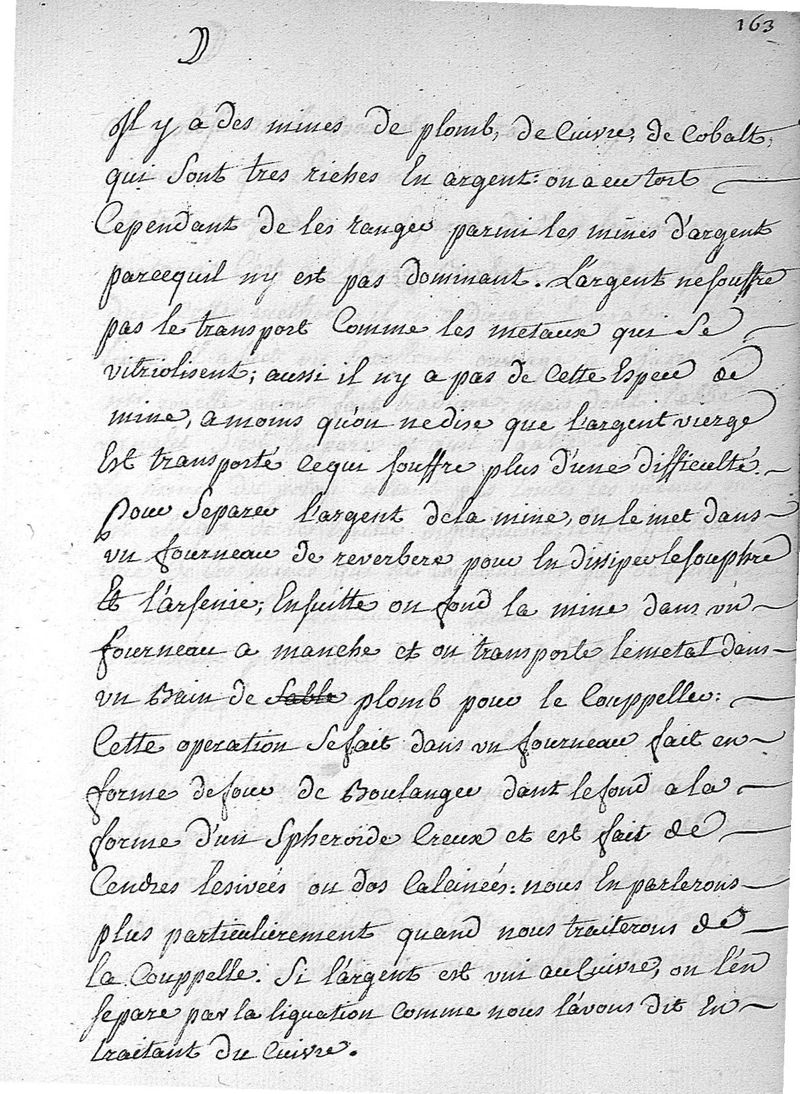 163
D
Il y a des mines de plomb, de Cuivre, de Cobalt,
qui sont tres riches En argent: on a eu tort
Cependant de les ranger parmi les mines d'argent
parcequil ny est pas dominant. L'argent ne souffre
pas le transport Comme les metaux qui se
vitriolisent; aussi il ny a pas de Cette Espece de
mine, a moins qu'on ne dise que l'argent vierge
Est transporté ce qui souffre plus d'une difficulté.
Pour Separer l'argent de la mine, on le met dans
un fourneau de reverbere pour En dissiper le souphre
Et l'arsenic; Ensuitte on fond la mine dans un
fourneau a manche et on transporte le metal dans
un Bain de sable plomb pour le Couppeller:
Cette operation se fait dans un fourneau fait en
forme de four de Boulanger dont le fond a la
forme d'un Spheroide Creux et est fait de
Cendres lesiveés ou dos Calcineés: nous En parlerons
plus particulierement quand nous traiterons de
la Couppelle. Si l'argent est uni au Cuivre, on l'en
separe par la liquation comme nous l'avons dit En
traitant du Cuivre.